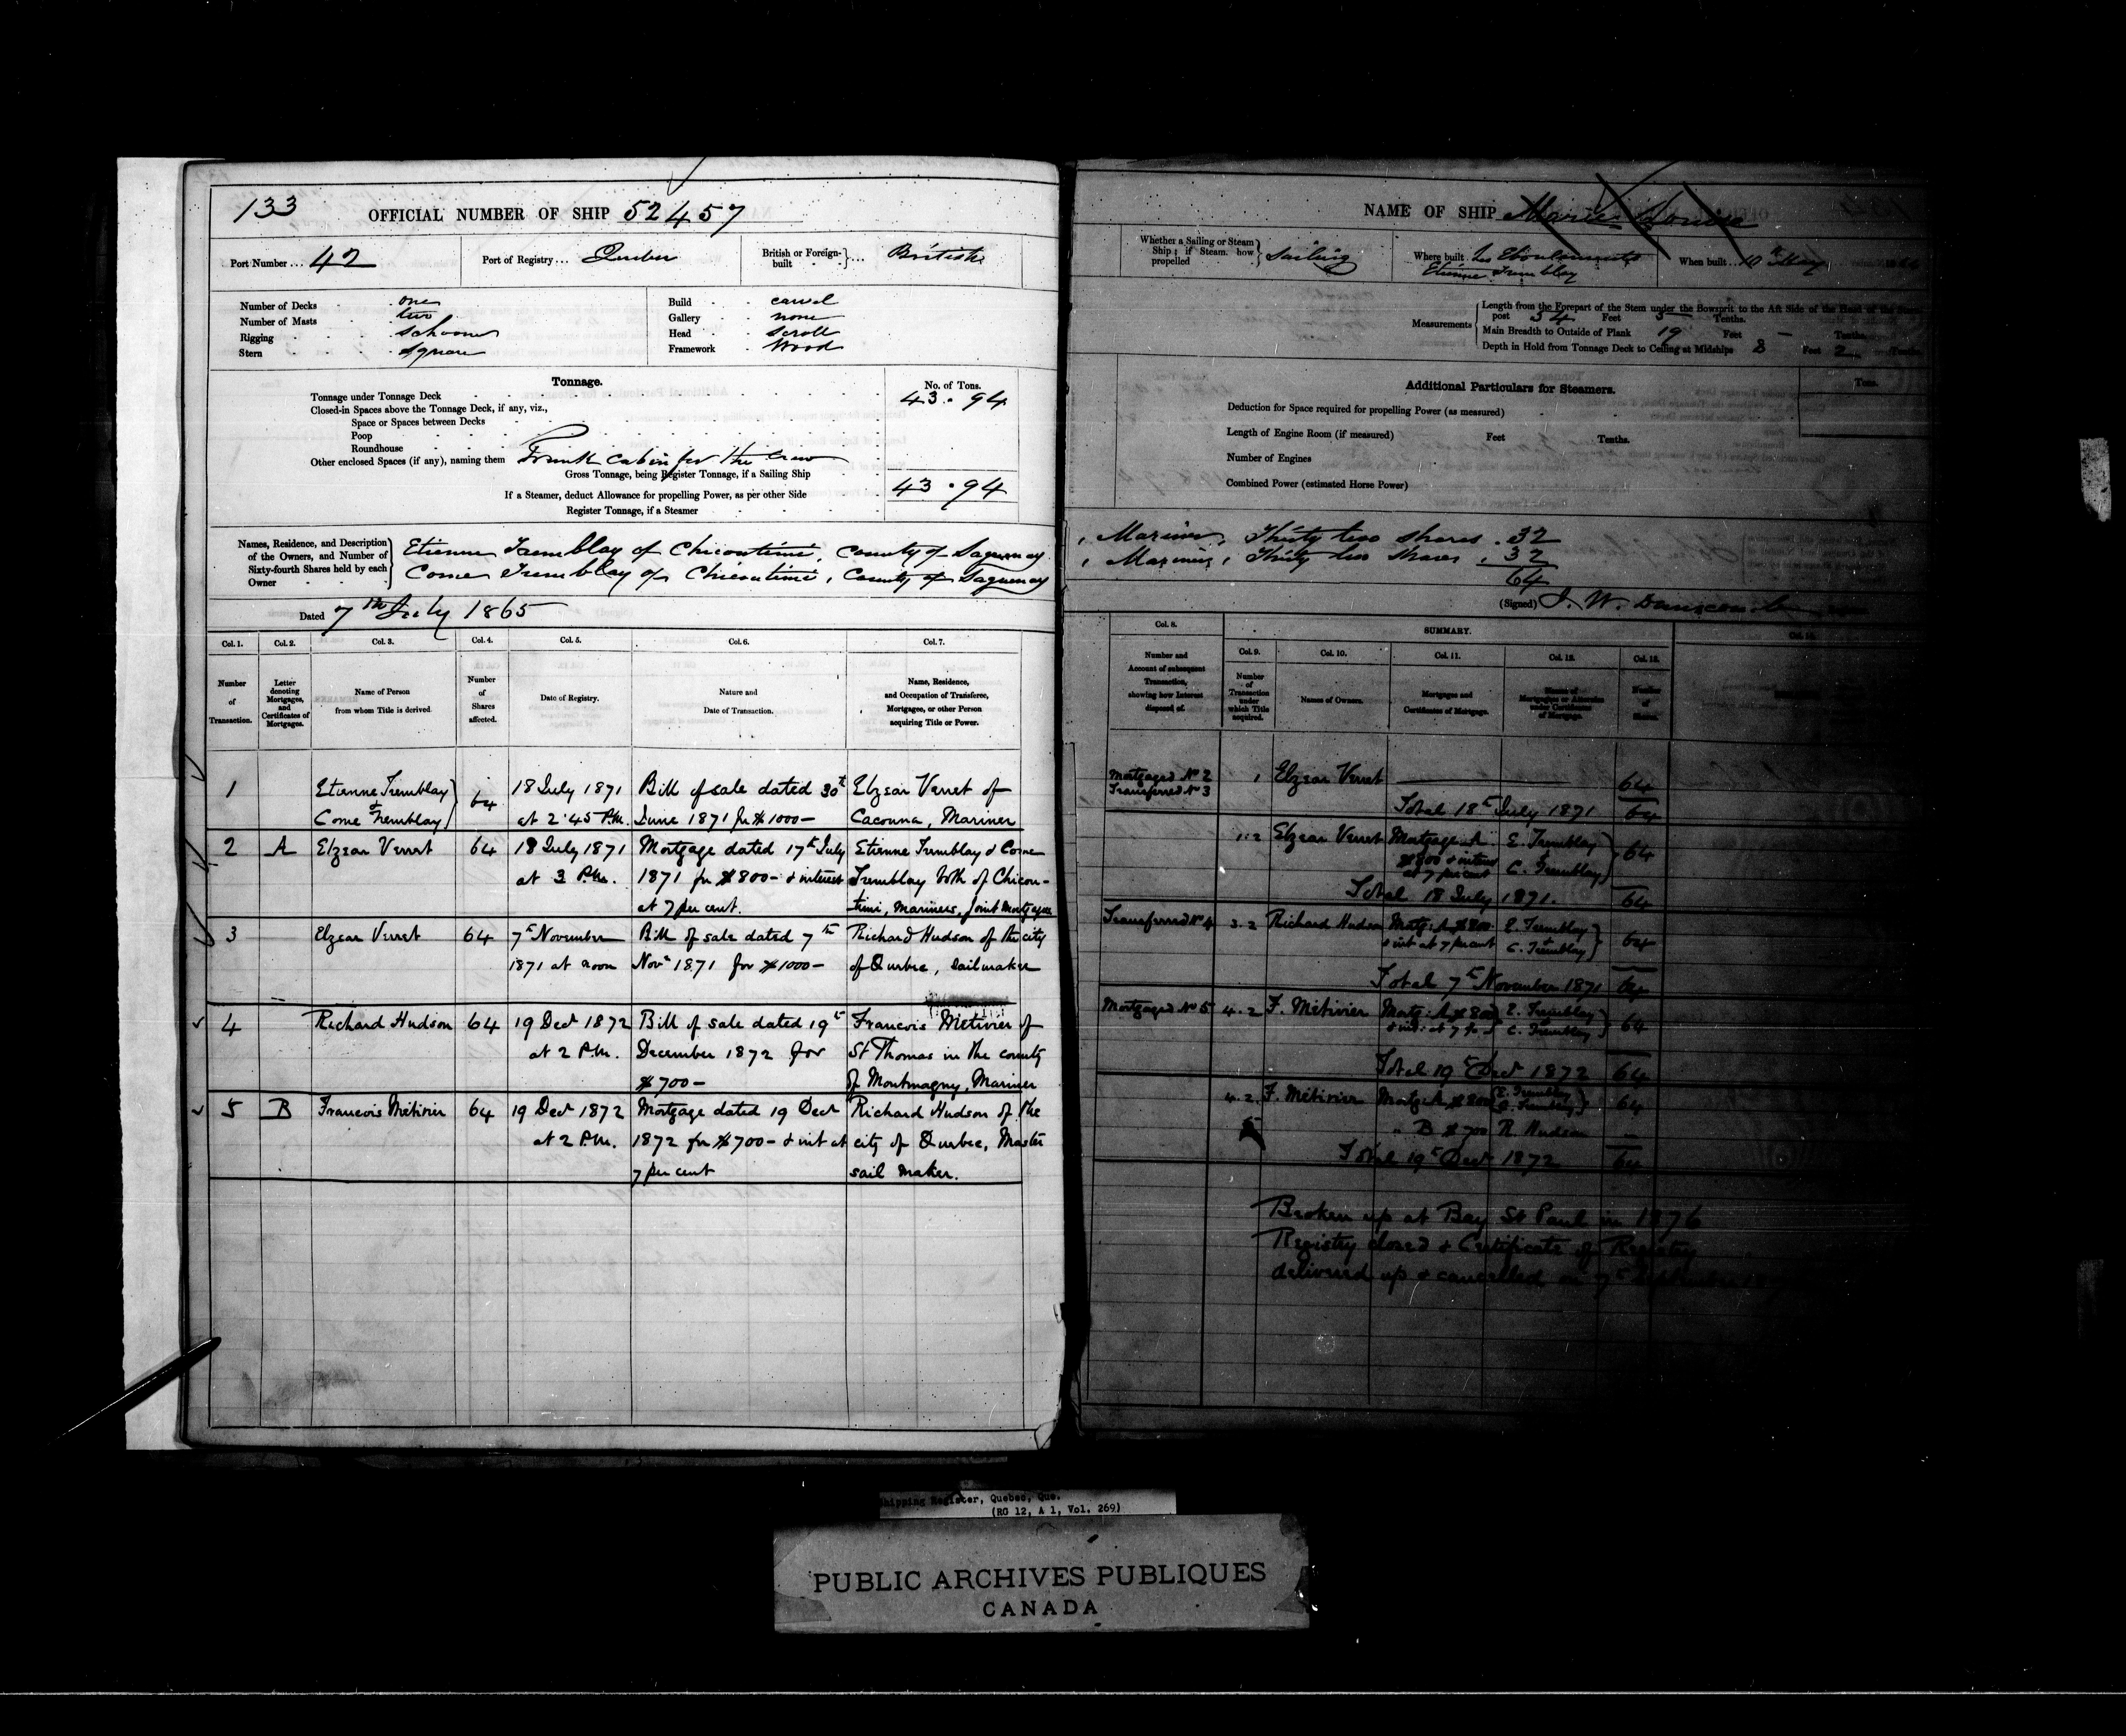 133 OFFICIAL NUMBER OF SHIP 52457
Port Number ... 42 Port of Registry ... Quebec British or Foreign-built ... British
Number of Decks one
Number of Masts two
Rigging schooner
Stern square
Build carvel
Gallery none
Head scroll
Framework Wood
Tonnage. No. of Tons.
Tonnage under Tonnage Deck 43.94
Closed-in Spaces above the Tonnage Deck, if any, viz.,
Space or Spaces between Decks
Poop
Roundhouse
Other enclosed Spaces (if any), naming them Trunk cabin for the crew
Gross Tonnage, being Register Tonnage, if a Sailing Ship 43.94
If a Steamer, deduct Allowance for propelling Power, as per other Side
Register Tonnage, if a Steamer
Names, Residence, and Description of the Owners, and Number of Sixty-fourth Shares held by each Owner
Etienne Tremblay of Chicoutimi, County of Saguenay
Come Tremblay of Chicoutimi, County of Saguenay
Dated 7th July 1865
Col. 1. Col. 2. Col. 3. Col. 4. Col. 5. Col. 6. Col. 7.
Number of Transaction.
Letter denoting Mortgages, and Certificates of Mortgages.
Name of Person from whom Title is derived.
Number of Shares affected.
Date of Registry.
Nature and Date of Transaction.
Name, Residence, and Occupation of Transferee, Mortgagee, or other Person acquiring Title or Power.
1 Etienne Tremblay & Come Tremblay } 64 18 July 1871 Bill of sale dated 30t Elzear Verret of
at 2.45 P.M. June 1871 for $1000- Cacouna, Mariner
2 A Elzear Verret 64 18 July 1871 Mortgage dated 17th July Etienne Tremblay & Come
at 3 P.M. 1871 for $800- & interest Tremblay both of Chicou-
at 7 per cent. timi, Mariners, joint Mortgagees
3 Elzear Verret 64 7th November Bill of sale dated 7th Richard Hudson of the city
1871 at noon Novr 1871 for $1000- of Quebec, sailmaker
4 Richard Hudson 64 19 Decr 1872 Bill of sale dated 19th Francois Metivier of
at 2 P.M. December 1872 for St Thomas in the county
$700- of Montmagny, Mariner
5 B Francois Métivier 64 19 Decr 1872 Mortgage dated 19 Decr Richard Hudson of the
at 2 P.M. 1872 for $700- & int at city of Quebec, Master
7 per cent sail maker.
NAME OF SHIP Marie Louise
Whether a Sailing or Steam Ship; if Steam, how propelled Sailing
Where built Les Eboulements
Etienne Tremblay
When built 10th May
Measurements
Length from the Forepart of the Stem under the Bowsprit to the Aft Side of the Head of the Stern
post 54 Feet 5 Tenths.
Main Breadth to Outside of Plank 19 Feet - Tenths.
Depth in Hold from Tonnage Deck to Ceiling at Midships 8 Feet 2 Tenths.
Additional Particulars for Steamers. Tons.
Deduction for Space required for propelling Power (as measured)
Length of Engine Room (if measured) Feet Tenths.
Number of Engines
Combined Power (estimated Horse Power)
, Mariner, Thirty two shares . 32
, Mariner, Thirty two shares . 32
64
(Signed) J. W. Dunscomb
Col. 8. SUMMARY.
Col. 9. Col. 10. Col. 11. Col. 12. Col. 13.
Number and Account of subsequent Transaction, showing how Interest disposed of.
Number of Transaction under which Title acquired.
Names of Owners.
Mortgages and Certificates of Mortgage.
Number of Shares.
Mortgaged No 2 1 Elzear Verret 64
Transferred No 3
Total 18t July 1871 64
1.2 Elzear Verret Mortgage A E. Tremblay 64
$800 & interest &
at 7 per cent C. Tremblay
Total 18 July 1871. 64
Transferred No 4 3.2 Richard Hudson Mortg: A $800 E. Tremblay 64
& int at 7 per cent & C. Tremblay
Total 7t November 1871 64
Mortgaged No 5 4.2 F. Métivier Mortg: A $800 E. Tremblay 64
& C. Tremblay
Total 19t Decr 1872 64
4.2 F. Métivier Mortg: A $800 E. Tremblay 64
C. Tremblay
5 " B $700 R Hudson
Total 19t Decr 1872 64
Broken up at Bay St Paul in 1876
Registry closed & Certificate of Registry
delivered up & cancelled on 7t September
Shipping Register, Quebec, Que.
(RG 12, A 1, Vol. 269)
PUBLIC ARCHIVES PUBLIQUES
CANADA